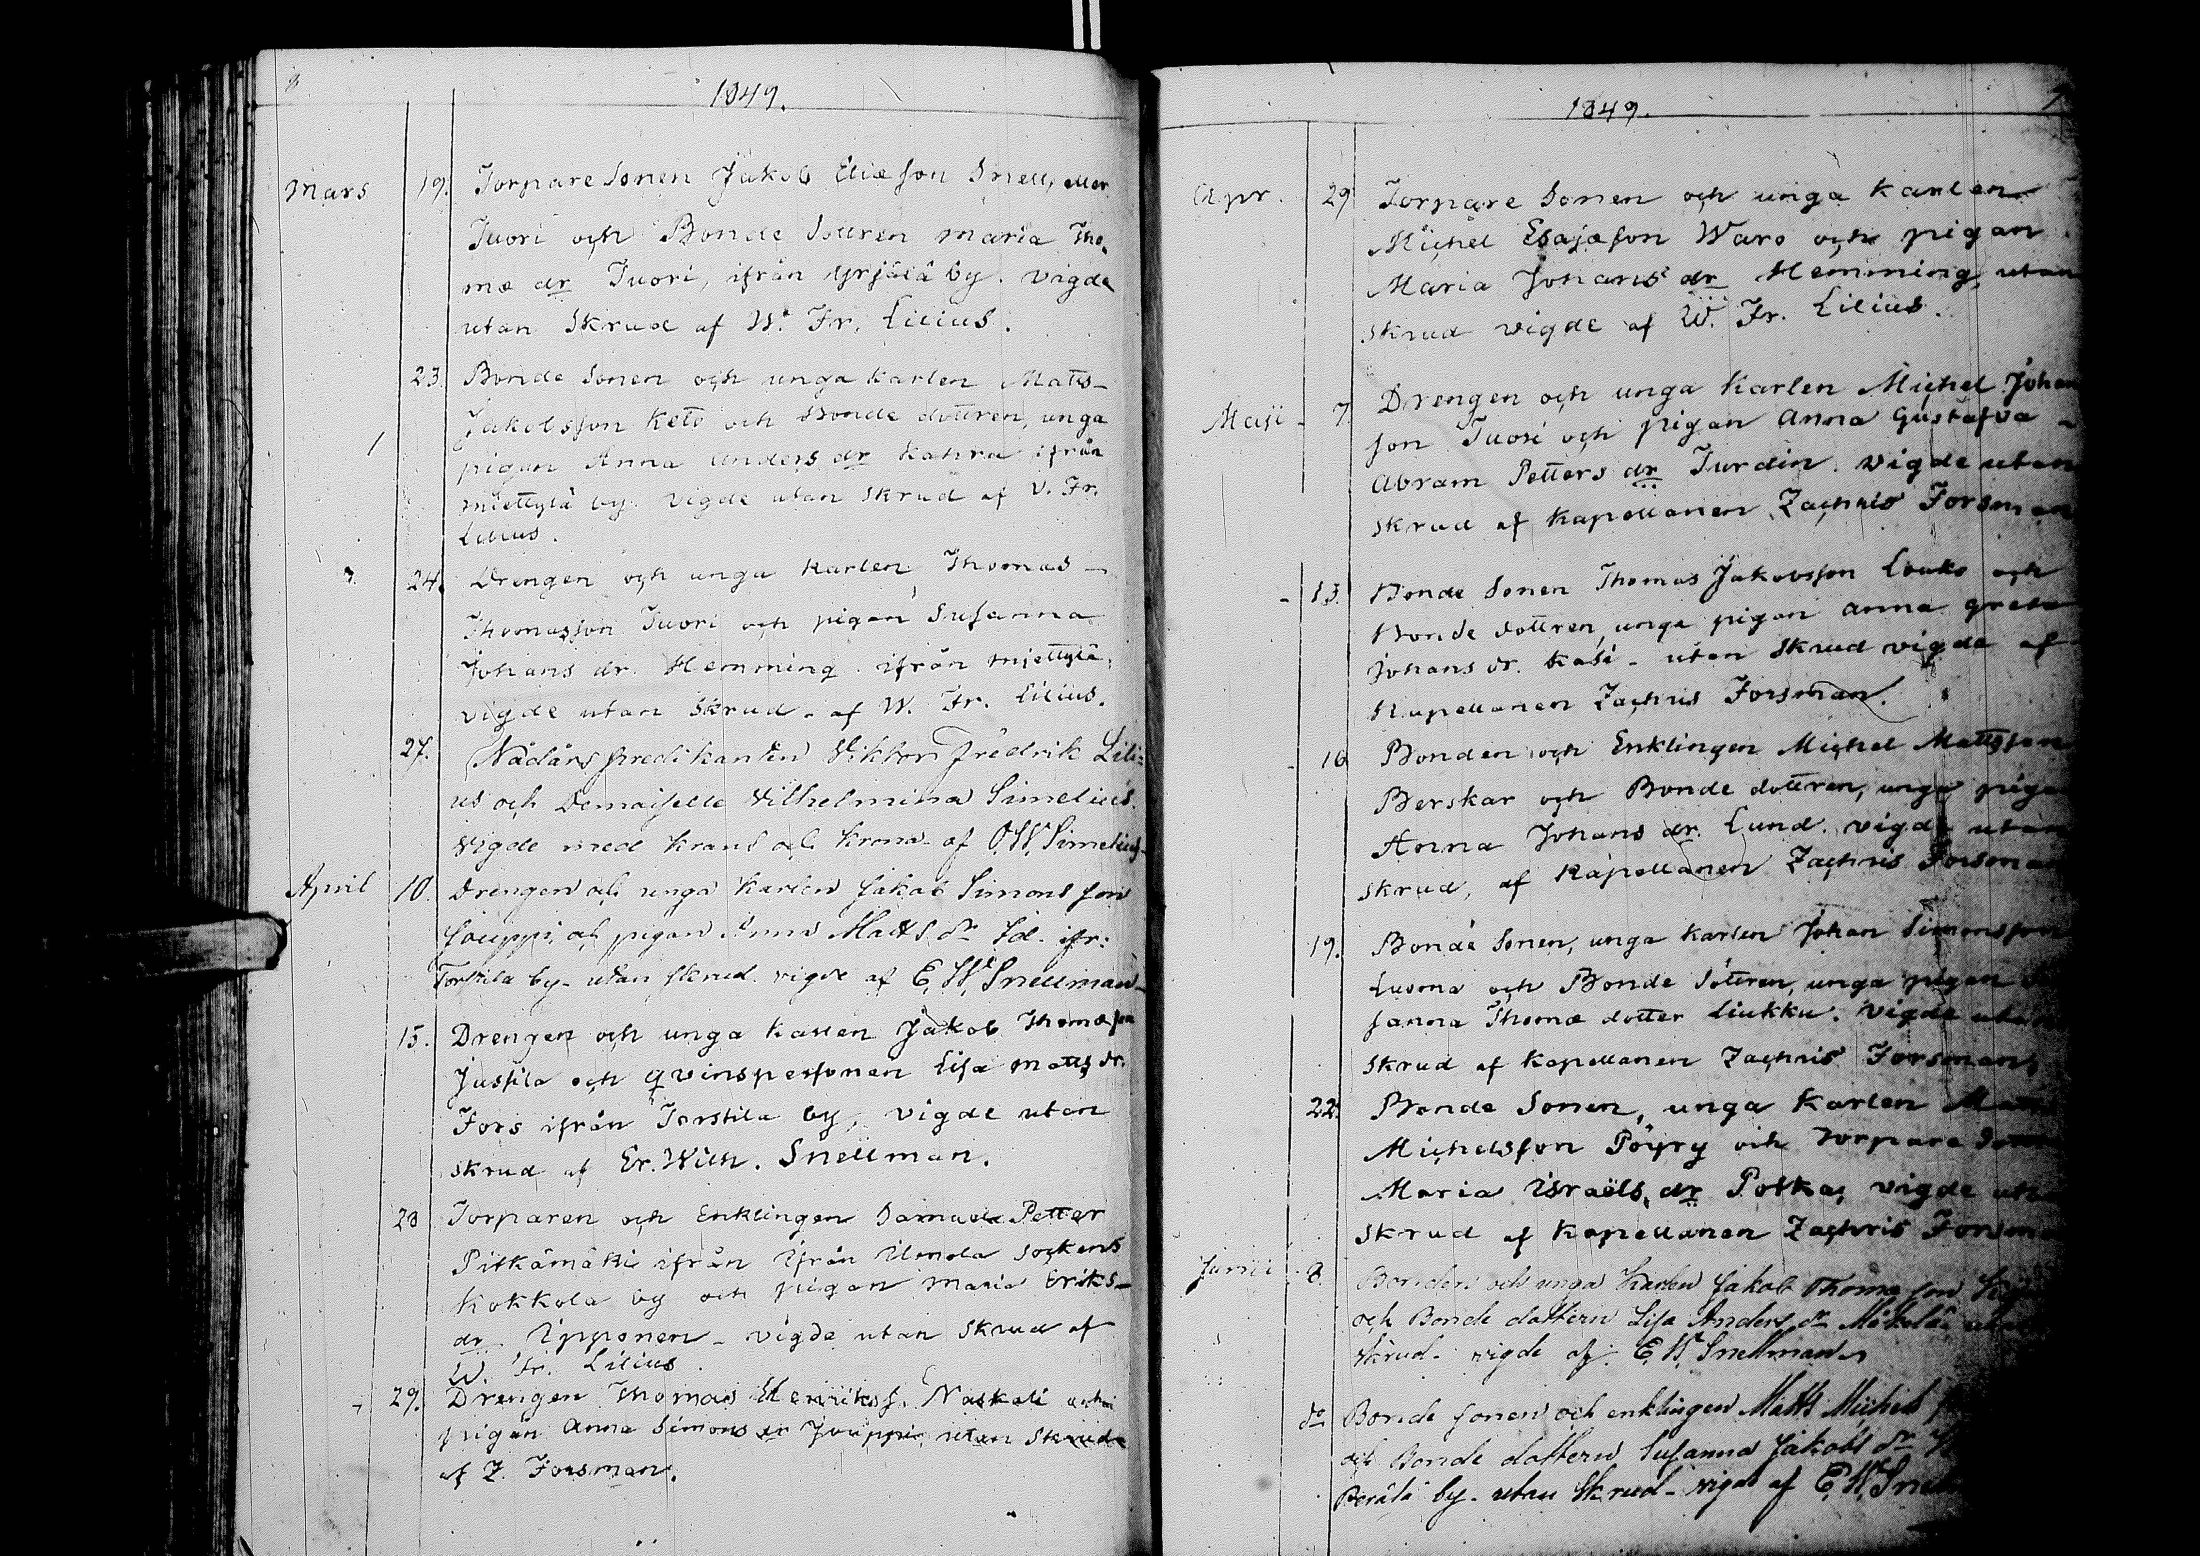 8
1849.
Mars 19. Torpare Sonen Jakob Eliæson Snell, eller
Tuori och Bonde dottren Maria Tho,
mæ dr Tuori, ifrån Yrjälä by. Vigde
utan Skrud af W. Fr. Lilius.
23. Bonde Sonen och unga karlen Matts-
Jakobsson Keto och Bonde dottren, unga
pigan Anna Anders dr Kahra ifrån
Miettylä by. Vigde utan skrud af V. Fr.
Lilius.
24. Drengen och unga karlen Thomas-
Thomasson Tuori och pigan Susanna
Johans dr. Hemming. ifrån Miettylä,
vigde utan Skrud. af W. Fr. Lilius.
27. Nådårs predikanten Viktor Fredrik Lili=
us och Demaiselle Vilhelmina Simelius.
Vigde med Krans och Krona af O.W. Simelius.
April 10. Drengen och unga Karlen Jakob Simons son
Jouppi, och pigan Anna Matts dr ifr:
Torstila by. utan skrud. vigde af E. W. Snellman
15. Drengen och unga Karlen Jakob Thomæson
Jussila och qvinspersonen Lisa Matts dr.
Fors ifrån Torstila by, vigde utan
skrud af Er. Wilh. Snellman.
28 Torparen och Enklingen Samuel Petter
Pitkämäki ifrån ifrån Ilmola sockens
Kokkola by och pigan Maria Eriks-
dr. Ipponen - vigde utan skrud af
W. Fr. Lilius.
29. Drengen Thomas Henrikss. Naskali och
pigan Anna Simons dr Jouppi, utan skrud
af Z. Forsman.
1849.
Apr. 29 Torpare Sonen och unga Karlen
Michel Esajæson Waro och pigan
Maria Johans dr Hemming, utan
skrud vigde af W. Fr. Lilius.
Drengen och unga Karlen Michel Johan
Maji - 7. son Tuori och pigan Anna Gustafva -
Abram Petters dr Turdin. vigde utan
skrud af Kapellanen Zachris Forsman
- 13. Bonde Sonen Thomas Jakobsson Louko och
Bonde dottren, unga pigan Anna Greta
Johans dr. Kasi - utan skrud vigde af
Kapellanen Zachris Forsman.
- 16 Bonden och Enklingen Michel Mattsson
Berskar och Bonde dottren, unga piga
Anna Johans dr. Lund. vigde utan
skrud, af Kapellanen Zachris Forsman
19. Bonde Sonen, unga karlen Johan Simonsson
Luoma och Bonde dottren, unga pigan
sanna Thomæ dotter Liukku. Vigde utan
skrud af Kapellanen Zachris Forsman,
22. Bonde Sonen, unga Karlen
Michelsson Pöyry och Torpare
Maria Israëls dr Potka, vigde
skrud af Kapellanen Zachris
Junii - 8. Bonden och unga Karlen Jakob Thomæ son
och Bonde dottern Lisa Anders dr Mäkelä
skrud. vigde af E. W. Snellman
do Bonde sonen och enklingen Matts Michels
och Bonde dottern Susanna Jakobs dr
Perälä by. utan Skrud. vigde af E. W.